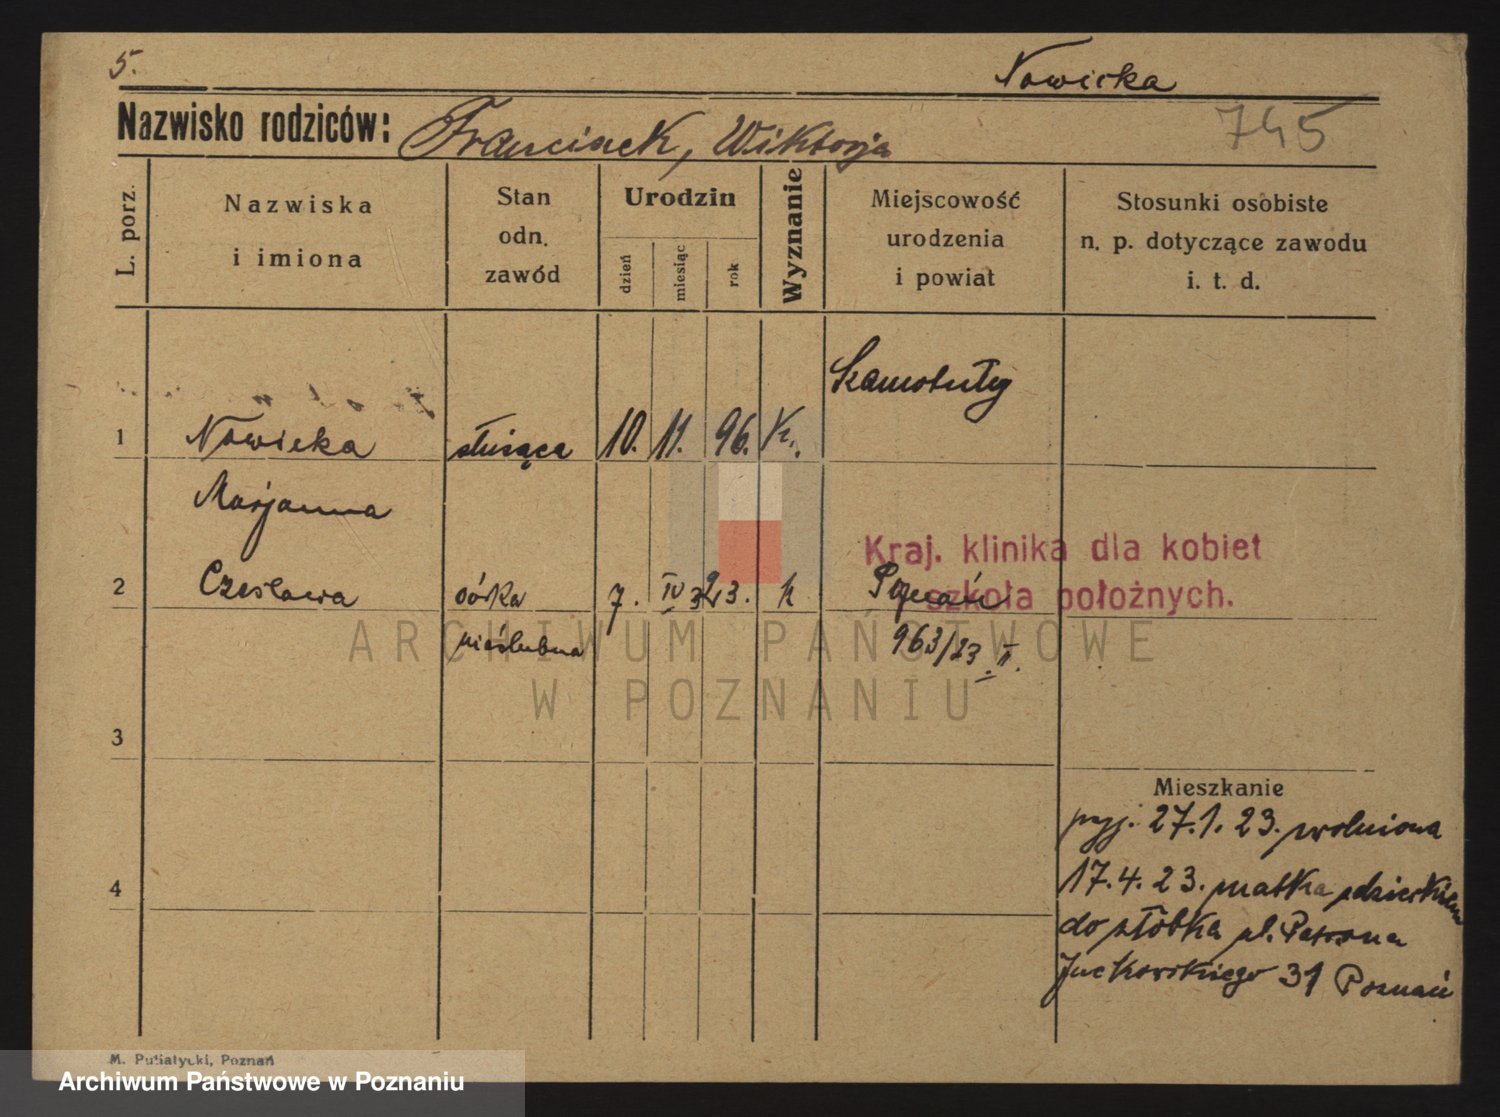 5.
Nowicka
Nazwisko rodziców: Franciszek, Wiktorja
745
L. porz.
Nazwiska
i imiona
Stan
odn.
zawód
Urodzin
dzień
miesiąc
rok
Wyznanie
Miejscowość
urodzenia
i powiat
Stosunki osobiste
n. p. dotyczące zawodu
i. t. d.
Szamotuły
1 Nowicka służąca 10. 11. 96. k.
Marjanna
Kraj. klinika dla kobiet
szkoła położnych.
2 Czesława córka 7. IV 23. k Poznań
nieślubna 963/23. II.
ARCHIWUM PAŃSTWOWE
W POZNANIU
3
Mieszkanie
przyj. 27.1.23. zwolniona
4 17.4.23. matka z dzieckiem
do żłóbka pl. Patrona
Jackowskiego 31 Poznań
M. Putiatycki, Poznań
Archiwum Państwowe w Poznaniu